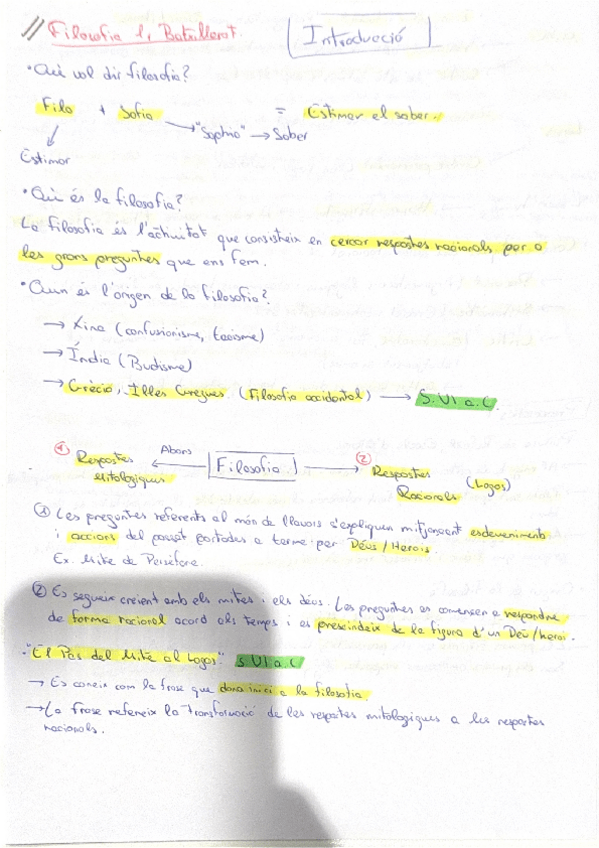 Filosofia 1r Batxillerat.
Introducció
• Què vol dir filosofia?
Filo + Sofia = Estimar el saber.
"Sophia" → Saber
Estimar
• Què és la filosofia?
La filosofia és l'activitat que consisteix en cercar respostes racionals per a
les grans preguntes que ens fem.
• Quin és l'origen de la filosofia?
→ Xina (confusionisme, taoisme)
→ Índia (Budisme)
→ Grècia, Illes Gregues (Filosofia occidental) → S. VI a.C.
① Respostes Mitològiques ← Abans Filosofia → ② Respostes Racionals (Logos)
① Les preguntes referents al món de llavors s'expliquen mitjançant esdeveniments
i accions del passat portades a terme per Déus / Herois.
Ex. Mite de Persèfone.
② Es segueix creient amb els mites i els déus. Les preguntes es comencen a respondre
de forma racional acord als temps i es prescindeix de la figura d'un Déu / heroi.
• "El Pas del Mite al Logos" S. VI a.C
→ Es coneix com la frase que dona inici a la filosofia.
→ La frase refereix la transformació de les respostes mitològiques a les respostes
racionals.